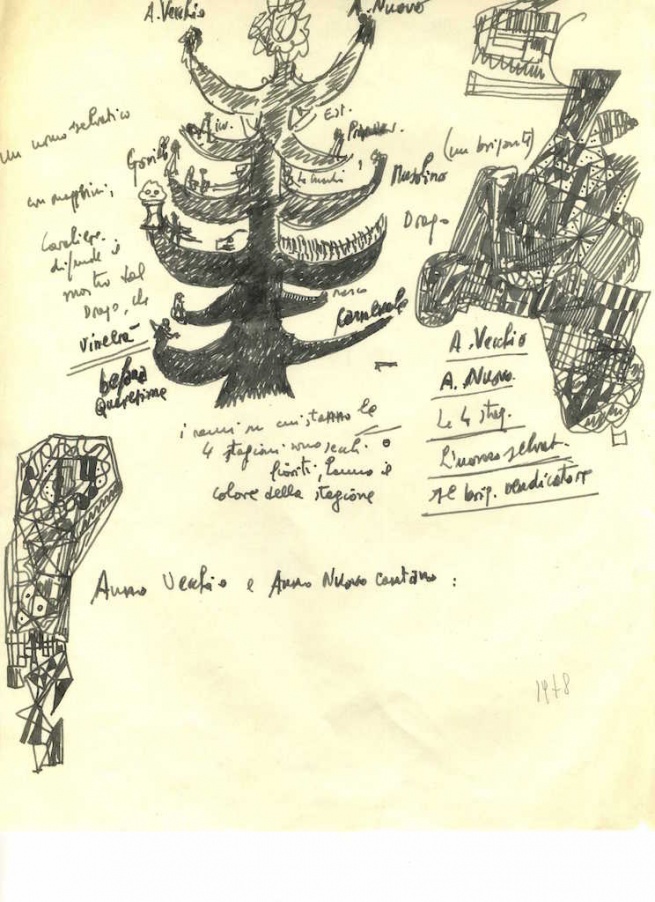 A. Vecchio
A. Nuovo
un uomo selvatico
Gorilla
Est.
Primav.
(un brigante)
Musolino
Drago
Cavaliere.
difende il
mostro dal
Drago, che
vincerà
Carnevale
befana
Quaresima
A. Vecchio
A. Nuovo
Le 4 stag.
L'uomo selvat.
Il brig. vendicatore
i rami su cui stanno le
4 stagioni sono secchi o
fioriti, hanno il
colore della stagione
Anno Vecchio e Anno Nuovo cantano :
1978